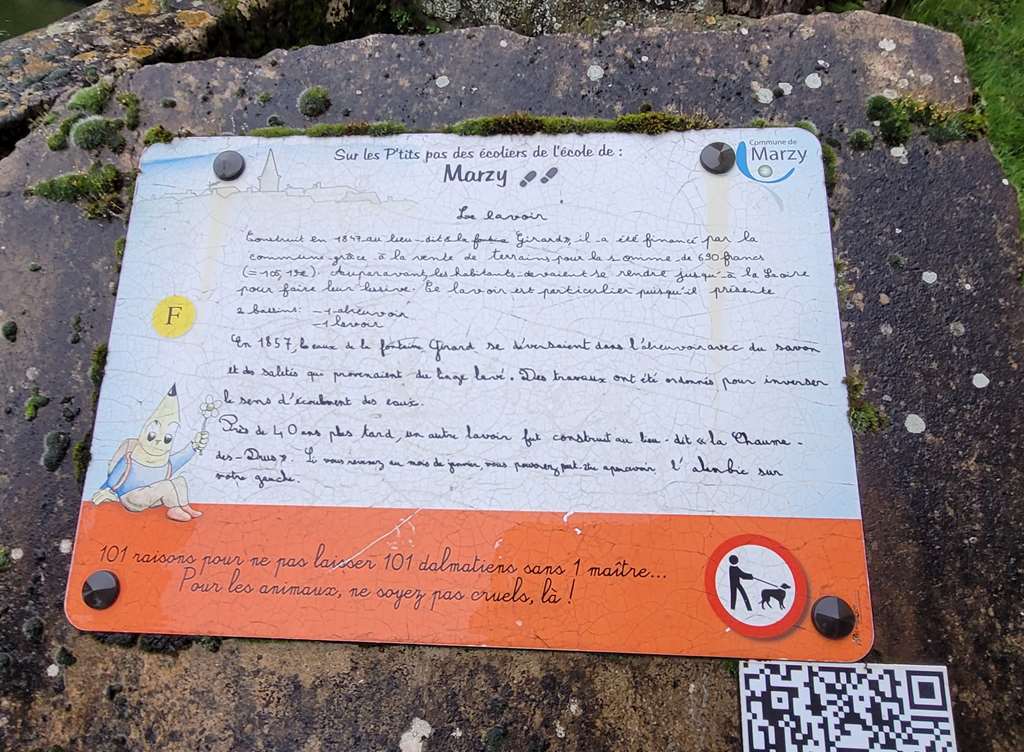 Sur les P'tits pas des écoliers de l'école de :
Marzy
Commune de
Marzy
Le lavoir
Construit en 1847 au lieu-dit à la fontaine Girard», il a été financé par la
commune grâce à la vente de terrains pour la somme de 690 francs
(= 105,19€). Auparavant, les habitants devaient se rendre jusqu'à la Loire
pour faire leur lessive. Ce lavoir est particulier puisqu'il présente
2 bassins: - 1 abreuvoir
- 1 lavoir
F
En 1857, les eaux de la fontaine Girard se déversaient dans l'abreuvoir avec du savon
et des saletés qui provenaient du linge lavé. Des travaux ont été ordonnés pour inverser
le sens d'écoulement des eaux.
Près de 40 ans plus tard, un autre lavoir fut construit au lieu-dit « la Chaume-
des-Drus». Si vous revenez au mois de janvier, vous pourrez peut-être apercevoir l'alambic sur
votre gauche.
101 raisons pour ne pas laisser 101 dalmatiens sans 1 maître...
Pour les animaux, ne soyez pas cruels, là !